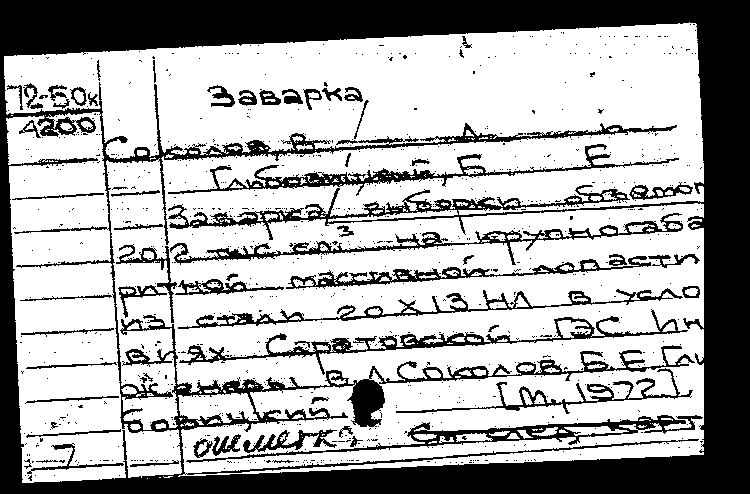 72-50к
4200
Заварка
Соколов, В Л и
Глибовицкий, Б Е
Заварка выборки объемом
20,2 тыс см³ на крупногаба
ритной массивной лопасти
из стали 20 Х 13 НЛ в усло
виях Саратовской ГЭС. Ин
женеры В.Л. Соколов, Б.Е Гли
бовицкий. [М., 1972].
См. след. карт.
7